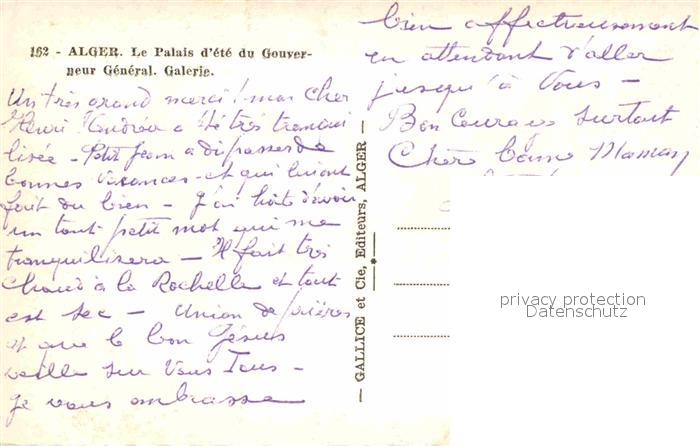 162 - ALGER. Le Palais d'été du Gouver-
neur Général. Galerie.
Un très grand merci ! mon Cher
Henri. Andrée a été très tranqui
lisée - Petit Jean a dû passer de
bonnes vacances - et qui lui ont
fait du bien - J'ai hâte d'avoir
un tout petit mot qui me
tranquilisera - Il fait très
chaud à la Rochelle et tout
est sec - Union de prières
et que le bon Jésus
veille sur Vous Tous -
je vous embrasse
bien affectueusement
en attendant d'aller
jusqu'à Vous -
Bon Courage surtout
Chère bonne Maman
— GALLICE et Cie, Editeurs, ALGER —
privacy protection
Datenschutz